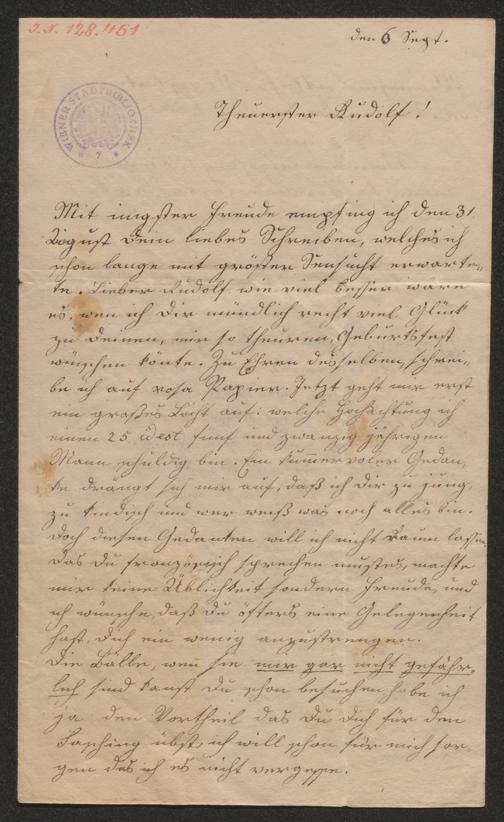 I.N. 128.451
den 6 Sept.
WIENER STADTBIBLIOTHEK
* 7 *
Theuerster Rudolf!
Mit inigster Freude empfing ich den 31
August Dein liebes Schreiben, welches ich
schon lange mit größter Sensucht erwarte-
te. Lieber Rudolf wie viel besser wäre
es, wen ich Dir mündlich recht viel Glück
zu Deinen, mir so theuren, Geburtsfest
wünschen könte. Zu Ehren desselben, schrei-
be ich auf rosa Papier. Jetzt geht mir erst
ein großes Licht auf: welche Hochachtung ich
einen 25 id est fünf und zwanzig jährigen
Mann schuldig bin. Ein kummervoler Gedan-
ke drängt sich mir auf, daß ich Dir zu jung,
zu kindisch und wer weiß was noch alles bin.
Doch diesen Gedanken will ich nicht Raum lassen
Das Du französisch sprechen mustes, machte
mir keine Üblichkeit sondern Freude, und
ich wünsche, daß Du öfters eine Gelegenheit
hast, Dich ein wenig anzustrengen.
Die Bälle, wen sie nur gar nicht gefähr-
lich sind kanst Du schon besuchen, habe ich
ja den Vortheil das Du Dich für den
Fasching übst, ich will schon für mich sor-
gen das ich es nicht vergesse.